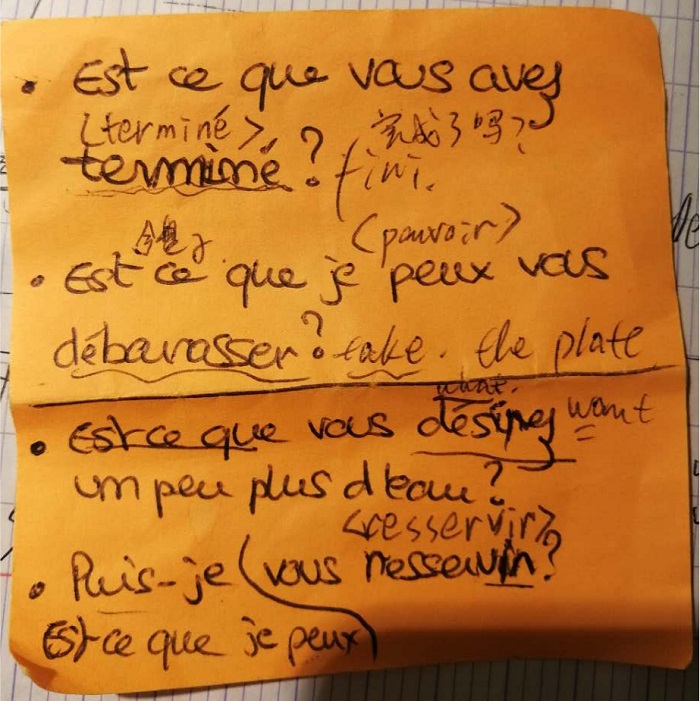 • Est ce que vous avez
<terminé> 完成了吗?
terminé? fini.
<pouvoir>
• Est ce que je peux vous
débarrasser? take. the plate
what.
• Est-ce que vous désirez want
un peu plus d'eau?
<resservir>
• Puis-je (vous resservir?
Est-ce que je peux)